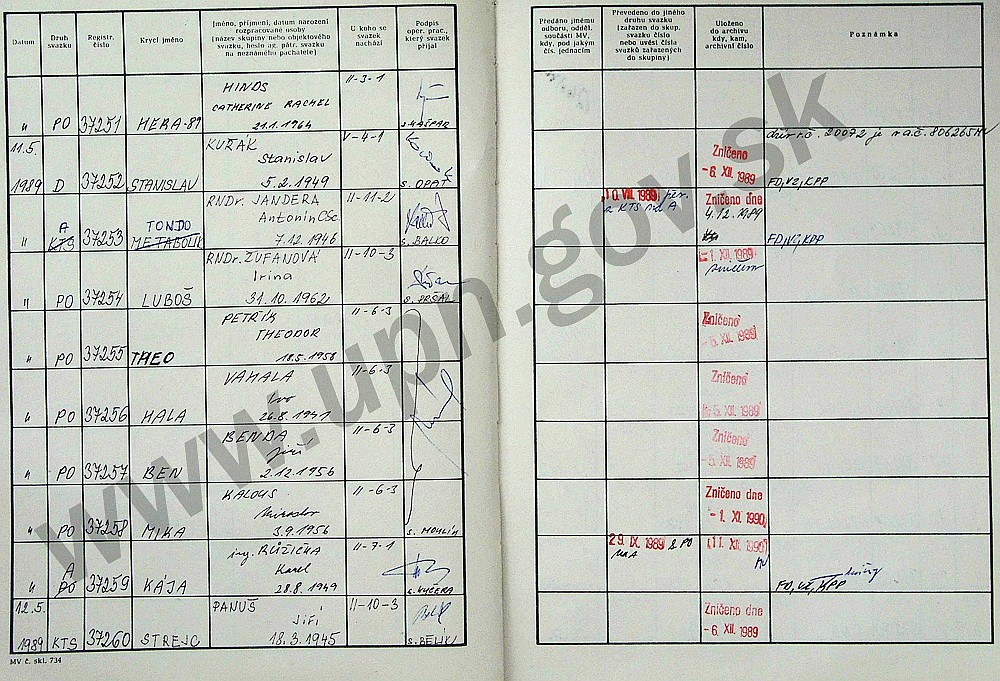 Datum
Druh svazku
Registr. číslo
Krycí jméno
Jméno, příjmení, datum narození
rozpracované osoby
(název skupiny nebo objektového
svazku, heslo ag. pátr. svazku
na neznámého pachatele)
U koho se
svazek
nachází
Podpis
oper. prac.,
který svazek
přijal
Předáno jinému
odboru, odděl.
součásti MV,
kdy, pod jakým
čís. jednacím
Převedeno do jiného
druhu svazku
(zařazen do skup.
svazku číslo
nebo uvést čísla
svazků zařazených
do skupiny)
Uloženo
do archivu
kdy, kam,
archivní číslo
Poznámka
HINDS II-3-1
CATHERINE RACHEL
" PO 37251 HERA-89 21.1.1964 S. KAŠPAR
11.5. KUŘÁK V-4-1
Stanislav
1989 D 37252 STANISLAV 5.2.1949 S. OPAT
Zničeno
-6. XII. 1989 FD, VZ, KPP
RNDr. JANDERA II-11-2
A TONDO Antonín CSc.
" KTS 37253 METABOLIK 7.12.1946 S. BALKO
10. VIII. 1989
z KTS na A
Zničeno dne
4.12.1989
FD, VZ, KPP
RNDr. ŽUFANOVÁ II-10-3
Irina
" PO 37254 LUBOŠ 31.10.1962 S. PRŠAL
-1. XII. 1989
PETŘÍK II-6-3
THEODOR
" PO 37255 THEO 18.5.1958
Zničeno
-5. XII. 1989
VAHALA II-6-3
Ivo
" PO 37256 HALA 26.8.1941
Zničeno
-5. XII. 1989
BENDA II-6-3
Jiří
" PO 37257 BEN 2.12.1956
Zničeno
-5. XII. 1989
KALOUS II-6-3
Miroslav
" PO 37258 MIKA 3.9.1956 S. MOHLÍN
Zničeno dne
-1. XI. 1990
ing. RŮŽIČKA II-7-1
A Karel
" PO 37259 KÁJA 28.8.1949 S. KUČERA
29. IX. 1989 z PO
na A
11. XII. 1990
FD, VZ, KPP
12.5. PANUŠ II-10-3
Jiří
1989 KTS 37260 STREJC 18.3.1945
Zničeno dne
-6. XII. 1989
MV č. skl. 734
www.upn.gov.sk